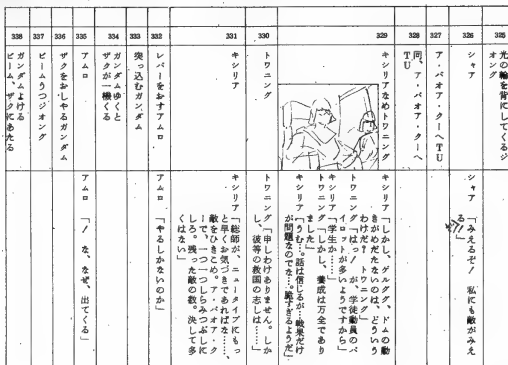 325
光の輪を背にしてくるジ
オング
326
シャア
シャア「みえるぞ! 私にも敵がみえ
る!」
327
ア・バオア・クーへTU
328
同、ア・バオア・クーへ
TU
329
キシリアなめトワニング
キシリア「しかし、ゲルググ、ドムの動
きがめだたないのは、どういう
わけだ? トワニング」
トワニング「はっ! が、学徒動員のパ
イロットが多いようですから」
キシリア「学生か……」
トワニング「しかし、養成は万全であり
ました」
キシリア「うむ…。話は信じるが…戦果だけ
が問題なのでな…。脆すぎるようだ」
330
トワニング
トワニング「申しわけありません。しか
し、彼等の救国の志しは……」
331
キシリア
キシリア「総帥が、ニュータイプにもっ
と早くお気づきであればな……、
敵をひきこめ。ア・バオア・ク
ーで、一つ一つしらみつぶしに
しろ。残った敵の数。決して多
くはない」
332
レバーをおすアムロ
アムロ「やるしかないのか」
333
突っ込むガンダム
334
ガンダムゆくと
ザクが一機くる
335
アムロ
アムロ「! な、なぜ、出てくる」
336
ザクをおしやるガンダム
337
ビームうつジオング
338
ガンダムよける
ビーム、ザクにあたる